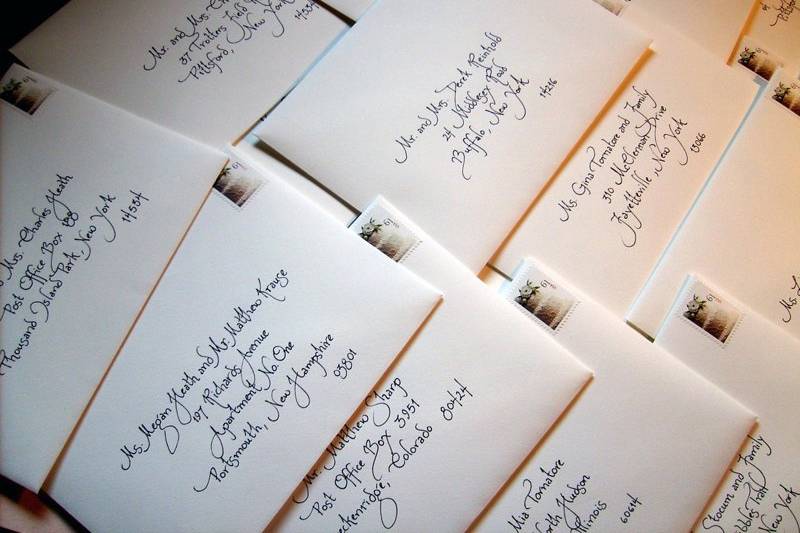 Mr. and Mrs.
37 Trotters Field
Pittsford, New York
14534
Mr. and Mrs. Derek Reinhold
24 Middlesex Road
Buffalo, New York
14216
Ms. Gina Tornatore and Family
310 McClennan Drive
Fayetteville, New York
13066
Mrs. Charles Heath
Post Office Box 188
Thousand Island Park, New York
61
61
Ms. Megan Heath and Mr. Matthew Krause
197 Richards Avenue
Apartment No. One
Portsmouth, New Hampshire
03801
61
Mr. Matthew Sharp
Post Office Box 3951
eckenridge, Colorado
80424
61
Mia Tornatore
orth Hudson
Illinois
60614
61
Stocum and Family
ibbles Trail
New York
61
61
Ms.